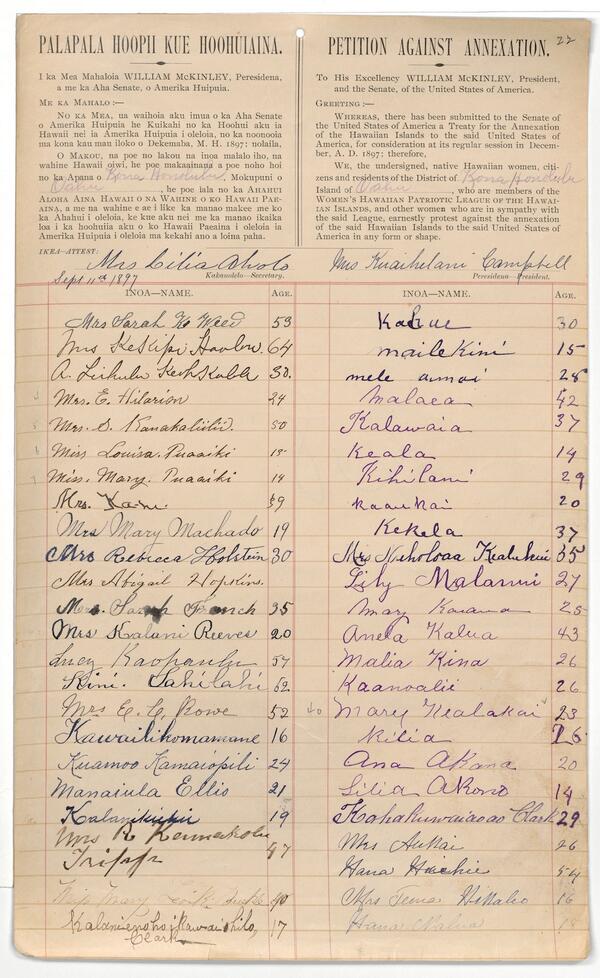 PALAPALA HOOPII KUE HOOHUIAINA.
I ka Mea Mahaloia WILLIAM McKINLEY, Peresidena,
a me ka Aha Senate, o Amerika Huipuia.
ME KA MAHALO :—
No KA MEA, ua waihoia aku imua o ka Aha Senate
o Amerika Huipuia he Kuikahi no ka Hoohui aku ia
Hawaii nei ia Amerika Huipuia i oleloia, no ka noonooia
ma kona kau mau iloko o Dekemaba, M. H. 1897; nolaila,
O MAKOU, na poe no lakou na inoa malalo iho, na
wahine Hawaii oiwi, he poe makaainana a poe noho hoi
no ka Apana o Kona Honolulu, Mokupuni o
Oahu, he poe lala no ka AHAHUI
ALOHA AINA HAWAII O NA WAHINE O KO HAWAII PAE-
AINA, a me na wahine e ae i like ka manao makee me ko
ka Ahahui i oleloia, ke kue aku nei me ka manao ikaika
loa i ka hoohuiia aku o ko Hawaii Paeaina i oleloia ia
Amerika Huipuia i oleloia ma kekahi ano a loina paha.
IKEA—ATTEST:
Mrs Lilia Aholo
Sept 11th 1897
Kakauolelo—Secretary.
PETITION AGAINST ANNEXATION.
22
To His Excellency WILLIAM McKINLEY, President,
and the Senate, of the United States of America.
GREETING :—
WHEREAS, there has been submitted to the Senate of
the United States of America a Treaty for the Annexation
of the Hawaiian Islands to the said United States of
America, for consideration at its regular session in Decem-
ber, A. D. 1897; therefore,
WE, the undersigned, native Hawaiian women, citi-
zens and residents of the District of Kona Honolulu
Island of Oahu, who are members of the
WOMEN'S HAWAIIAN PATRIOTIC LEAGUE OF THE HAWAI-
IAN ISLANDS, and other women who are in sympathy with
the said League, earnestly protest against the annexation
of the said Hawaiian Islands to the said United States of
America in any form or shape.
Mrs Kuaihelani Campbell
Peresidena—President.
INOA—NAME. AGE.
Mrs Sarah K. Weed 53
Mrs Kekipi 64
A. 30.
Mrs. E. Hilarion 24
Mrs. S. Kanakaliilii. 50
Miss Louisa. Puaaiki
Miss. Mary. Puaaiki 14
Mrs. Kani 39
Mrs Mary Machado 19
Mrs Rebecca Holstein 30
Mrs Abigail Hopkins.
Mrs. Sarah French 35
Mrs Kalani Reeves 20
Lucy 57
Kini. Lahilahi 62
Mrs E. C. Rowe 52
Kawailikomamane 16
Kuamoo Kamaiopili 24
Manaiula Ellis 21
19
Mrs R
Tripp 47
Miss Mary 40
17
Clark
INOA—NAME. AGE.
30
maile Kini 15
mele 28
Malaea 42
Kalawaia 37
Keala 14
Kihilani 29
20
Kekela 37
Mrs 35
Lily Malanui 27
Mary 25
Anela Kalua 43
Malia Kina 26
Kaanoalii 26
40 Mary Kealakai 23
Kilia 26
Ana Akana 20
Lilia Akono 14
Clark 29
Mrs Aukai 26
Hana 54
Mrs 16
Hana